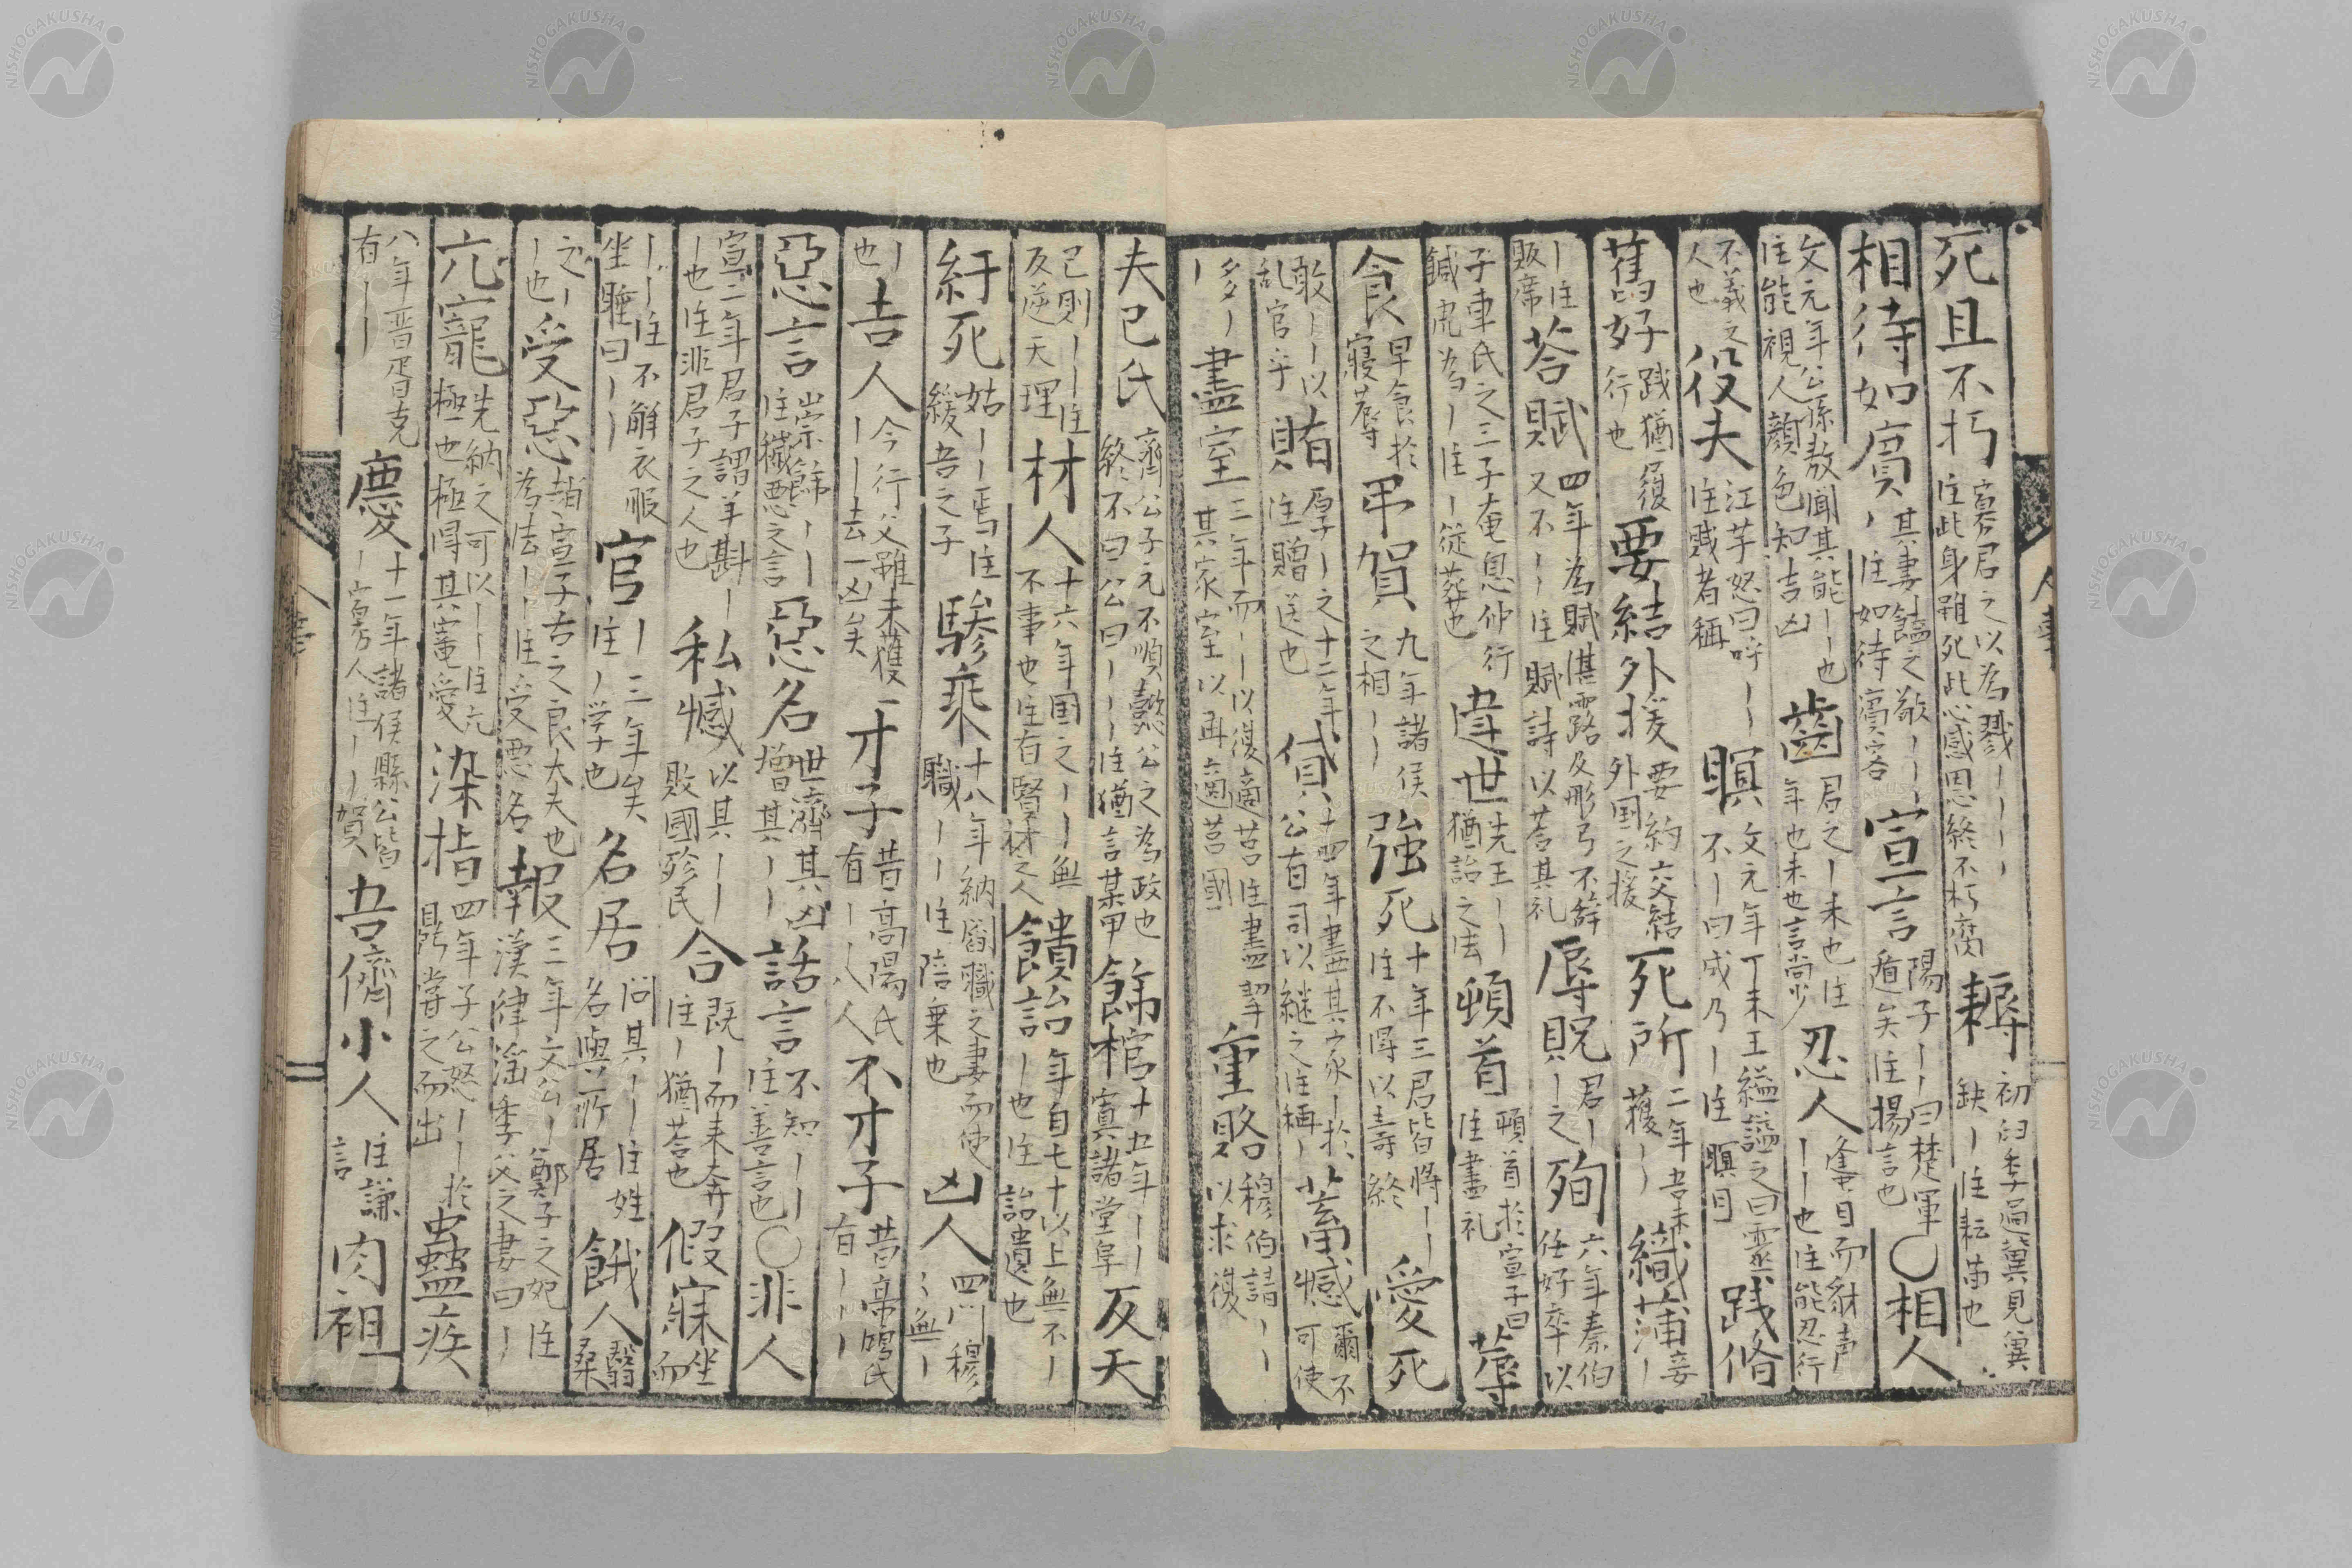 死且不朽 寡君之以為戮丨丨丨丨住此身雖死此心感恩終不朽腐 耨 初臼季過冀見冀缺丨住耘苗也
相待如賓 其妻饁之敬丨丨丨丨住如待賓客 宣言 陽子丨丨曰楚軍遁矣住揚言也 〇相人
文元年公孫敖聞其能丨丨也住能視人顏色知吉凶 齒 君之丨未也住年也未也言尚少 忍人 逢目而豺声丨丨也住能忍行
不義之人也 役夫 江芋怒曰呼丨丨住賤者稱 瞑 文元年丁未王縊謚之曰霊不丨曰成乃丨住瞑目 践脩
舊好 践猶履行也 要結外援 要約交結外国之援 死所 二年吾未獲丨丨 織蒲 妾丨
丨住販席 荅賦 四年為賦湛露及彤弓不辞又不丨丨住賦詩以荅其礼 辱貺 君丨丨之 殉 六年秦伯任好卒以
子車氏之三子奄息仲行鍼虎為丨住丨從葬也 違世 先王丨丨猶詒之法 頓首 頓首於宣子曰住盡礼 蓐
食 早食於寢蓐 弔賀 九年諸侯之相丨丨 強死 十年三君皆將丨丨住不得以寿終 愛死
敢丨丨以乱官乎 賄 厚丨之十二年住贈送也 貸 十四年盡其家丨於公有司以継之住栖丨 蓄憾 爾不可使
多丨丨 盡室 三年而丨丨以復適莒住盡挈其家室以再適莒國 重賂 穆伯請丨丨以求復
夫已氏 齊公子元不順懿公之為政也終不曰公曰丨丨丨住猶言某甲 飾棺 十五年丨丨寘諸堂阜 反天
己則丨丨住反逆天理 材人 十六年国之丨丨無不事也住有賢材之人 饋詒 年自七十以上無不丨丨也住詒遺也
紆死 姑丨丨焉住緩吾之子 驂乘 十八年納閻職之妻而使職丨丨住陪乗也 凶人 四門穆〻無丨
丨也 吉人 今行父雖未獲一丨丨去一凶矣 才子 昔高陽氏有丨丨八人 不才子 昔帝鴻氏有丨丨丨
惡言 崇飾丨丨住穢悪之言 惡名 世濟其凶增其丨丨 話言 不知丨丨住善言也 〇非人
宣二年君子謂羊斟丨丨也住非君子之人也 私憾 以其丨丨敗國殄民 合 既丨而来奔住丨猶荅也 假寐 坐而
丨丨住不解衣服坐睡曰丨丨 官 丨三年矣住丨学也 名居 问其丨丨住姓名與所居 餓人 翳桑
之丨丨也 受惡 趙宣子古之良大夫也為法丨丨住受悪名 報 三年文公丨鄭子之妃住漢律淫季父之妻曰丨
亢寵 先納之可以丨丨住亢極也極得其寵愛 染指 四年子公怒丨丨於鼎嘗之而出 蠱疾
八年晋胥克有丨丨 慶 十一年諸侯縣公皆丨寡人住丨丨賀 吾儕小人 住謙言 肉袒